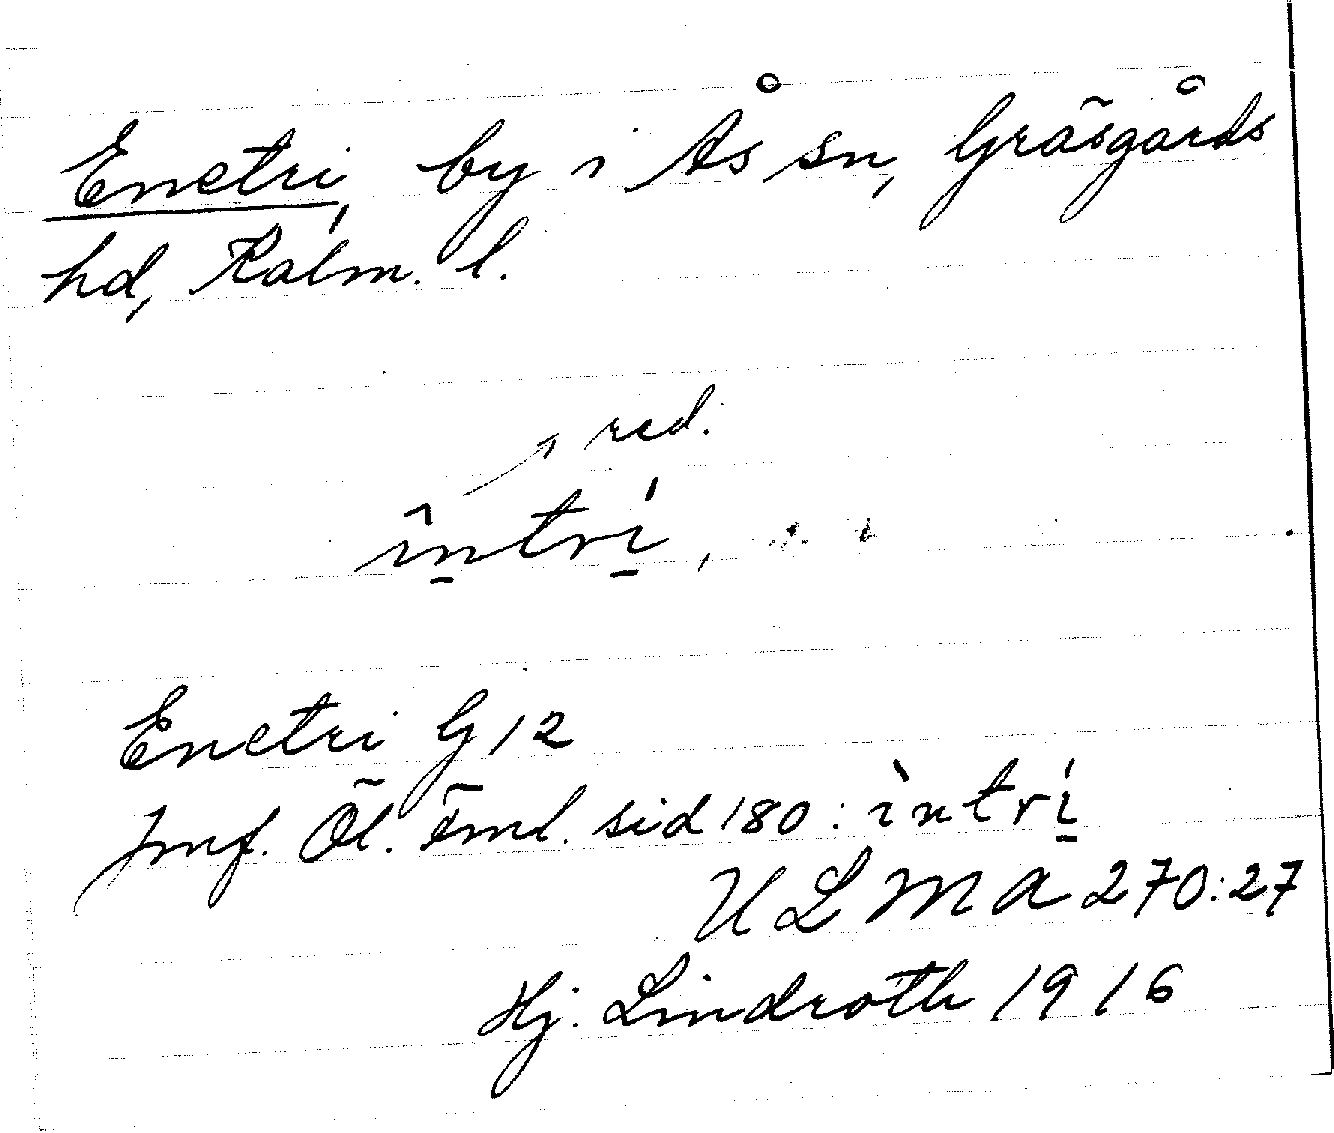 Enetri, by i Ås sn, Gräsgårds
hd, Kalm. l.
red.
ìn̲trí̲,
Enetri G 12
Jmf. Öl. Fml. sid 180: ìntrí̲
ULMA 270:27
Hj. Lindroth 1916